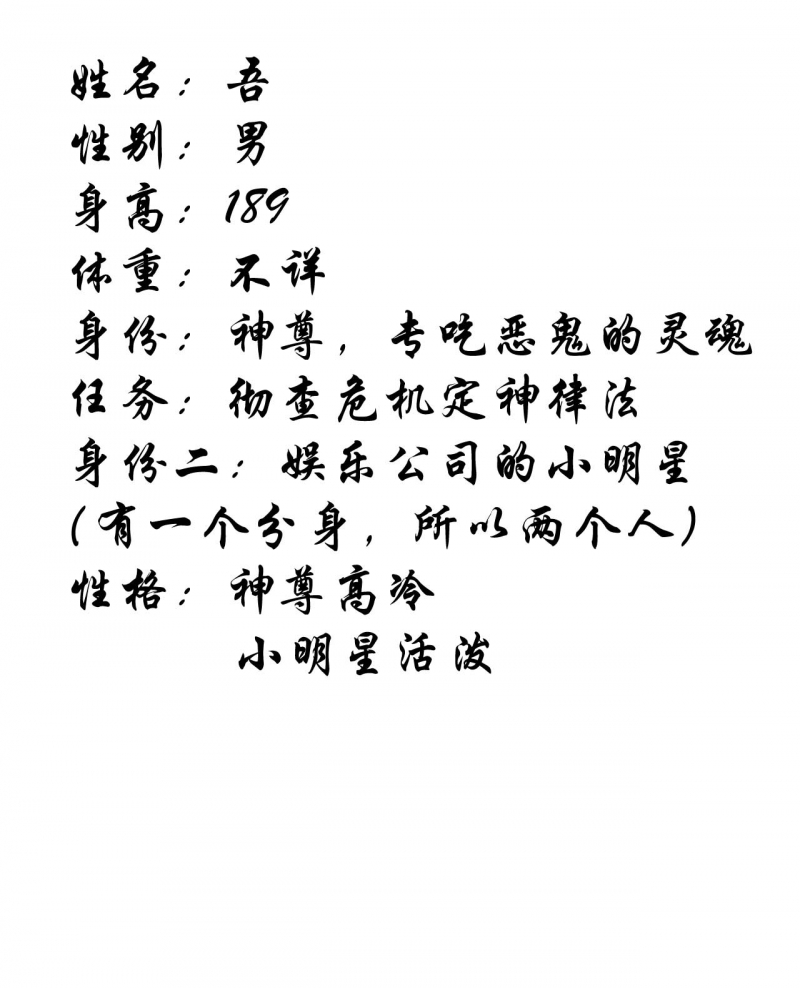 姓名：吾
性别：男
身高：189
体重：不详
身份：神尊，专吃恶鬼的灵魂
任务：彻查危机定神律法
身份二：娱乐公司的小明星
(有一个分身，所以两个人)
性格：神尊高冷
小明星活泼